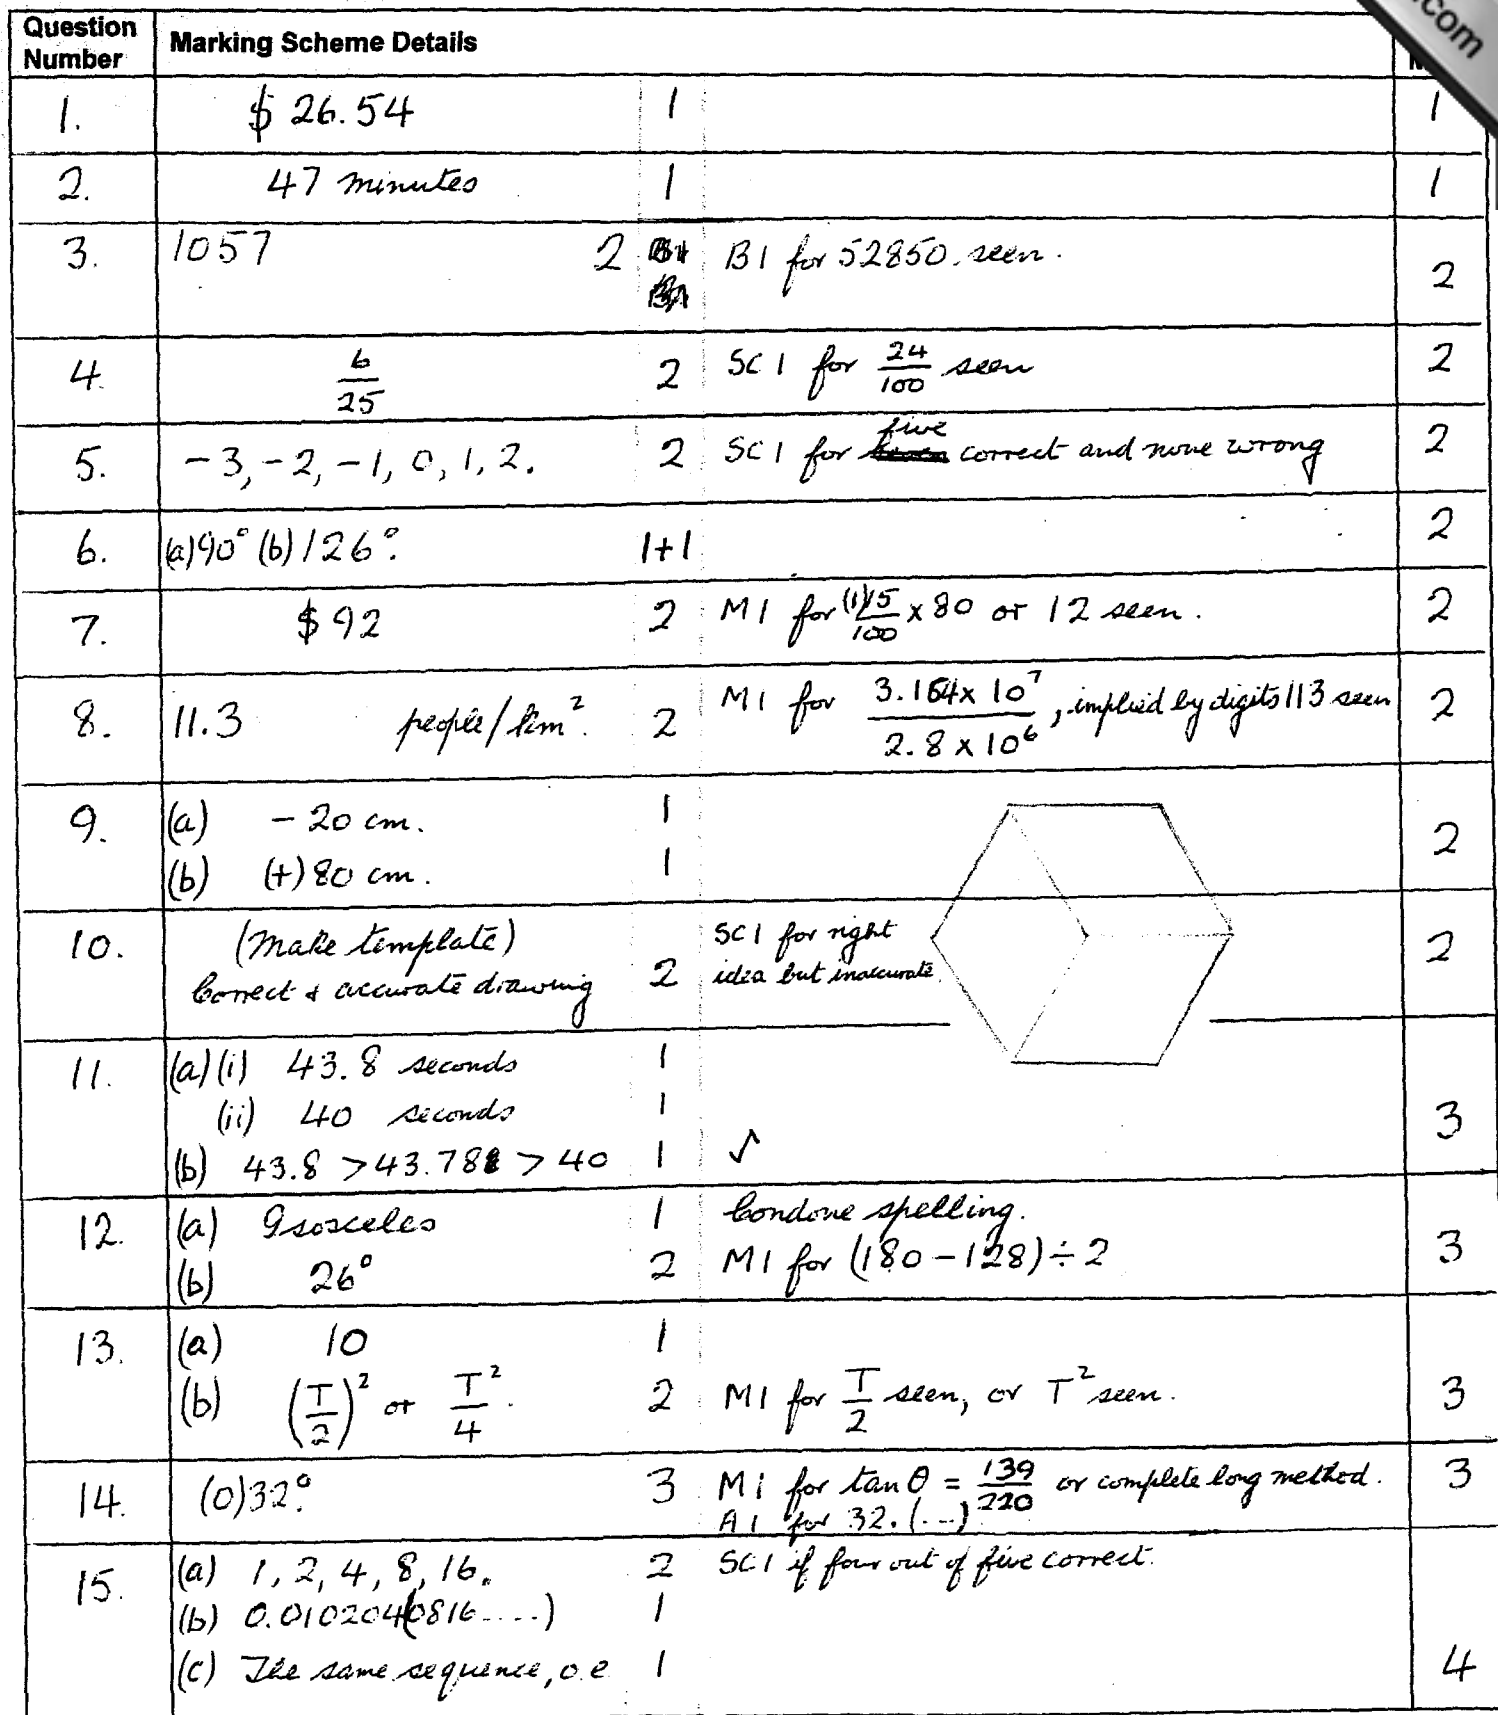 .com
Question Number Marking Scheme Details
1. $ 26.54 1 1
2. 47 minutes 1 1
3. 1057 2 B1 for 52850 seen. 2
4. 6/25 2 SC1 for 24/100 seen 2
5. -3, -2, -1, 0, 1, 2. 2 SC1 for five correct and none wrong 2
6. (a) 90° (b) 126°. 1+1 2
7. $ 92 2 M1 for (1)15/100 x 80 or 12 seen. 2
8. 11.3 people/km². 2 M1 for 3.164 x 10⁷ / 2.8 x 10⁶, implied by digits 113 seen 2
9. (a) - 20 cm. 1
(b) (+) 80 cm. 1 2
10. (Make template) SC1 for right
Correct & accurate drawing 2 idea but inaccurate. 2
11. (a) (i) 43.8 seconds 1
(ii) 40 seconds 1 3
(b) 43.8 > 43.78 > 40 1 √
12. (a) Isosceles 1 Condone spelling.
(b) 26° 2 M1 for (180 - 128) ÷ 2 3
13. (a) 10 1
(b) (T/2)² or T²/4. 2 M1 for T/2 seen, or T² seen. 3
14. (0)32°. 3 M1 for tan θ = 139/220 or complete long method. 3
A1 for 32.(...)
15. (a) 1, 2, 4, 8, 16. 2 SC1 if four out of five correct.
(b) 0.0102040816....) 1
(c) The same sequence, o.e 1 4